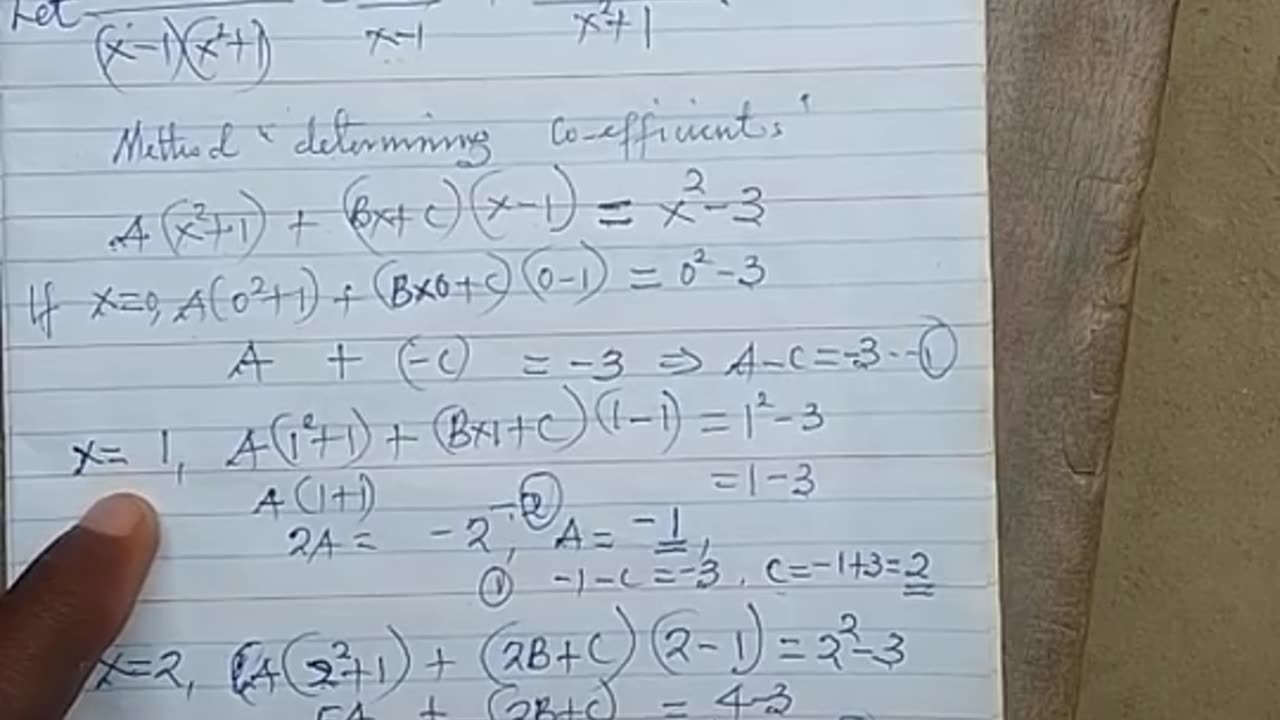 Let
(x-1)(x²+1) x-1 x²+1
Method "determining Co-efficients"
A(x²+1) + (Bx+C)(x-1) = x²-3
If x=0, A(0²+1) + (B×0+C)(0-1) = 0²-3
A + (-C) = -3 ⇒ A-C=-3--①
x= 1, A(1²+1) + (B×1+C)(1-1) = 1²-3
A(1+1) = 1-3
2A = -2 --②, A = -1,
① -1-C=-3, C=-1+3=2
x=2, A(2²+1) + (2B+C)(2-1) = 2²-3
5A + (2B+C) = 4-3